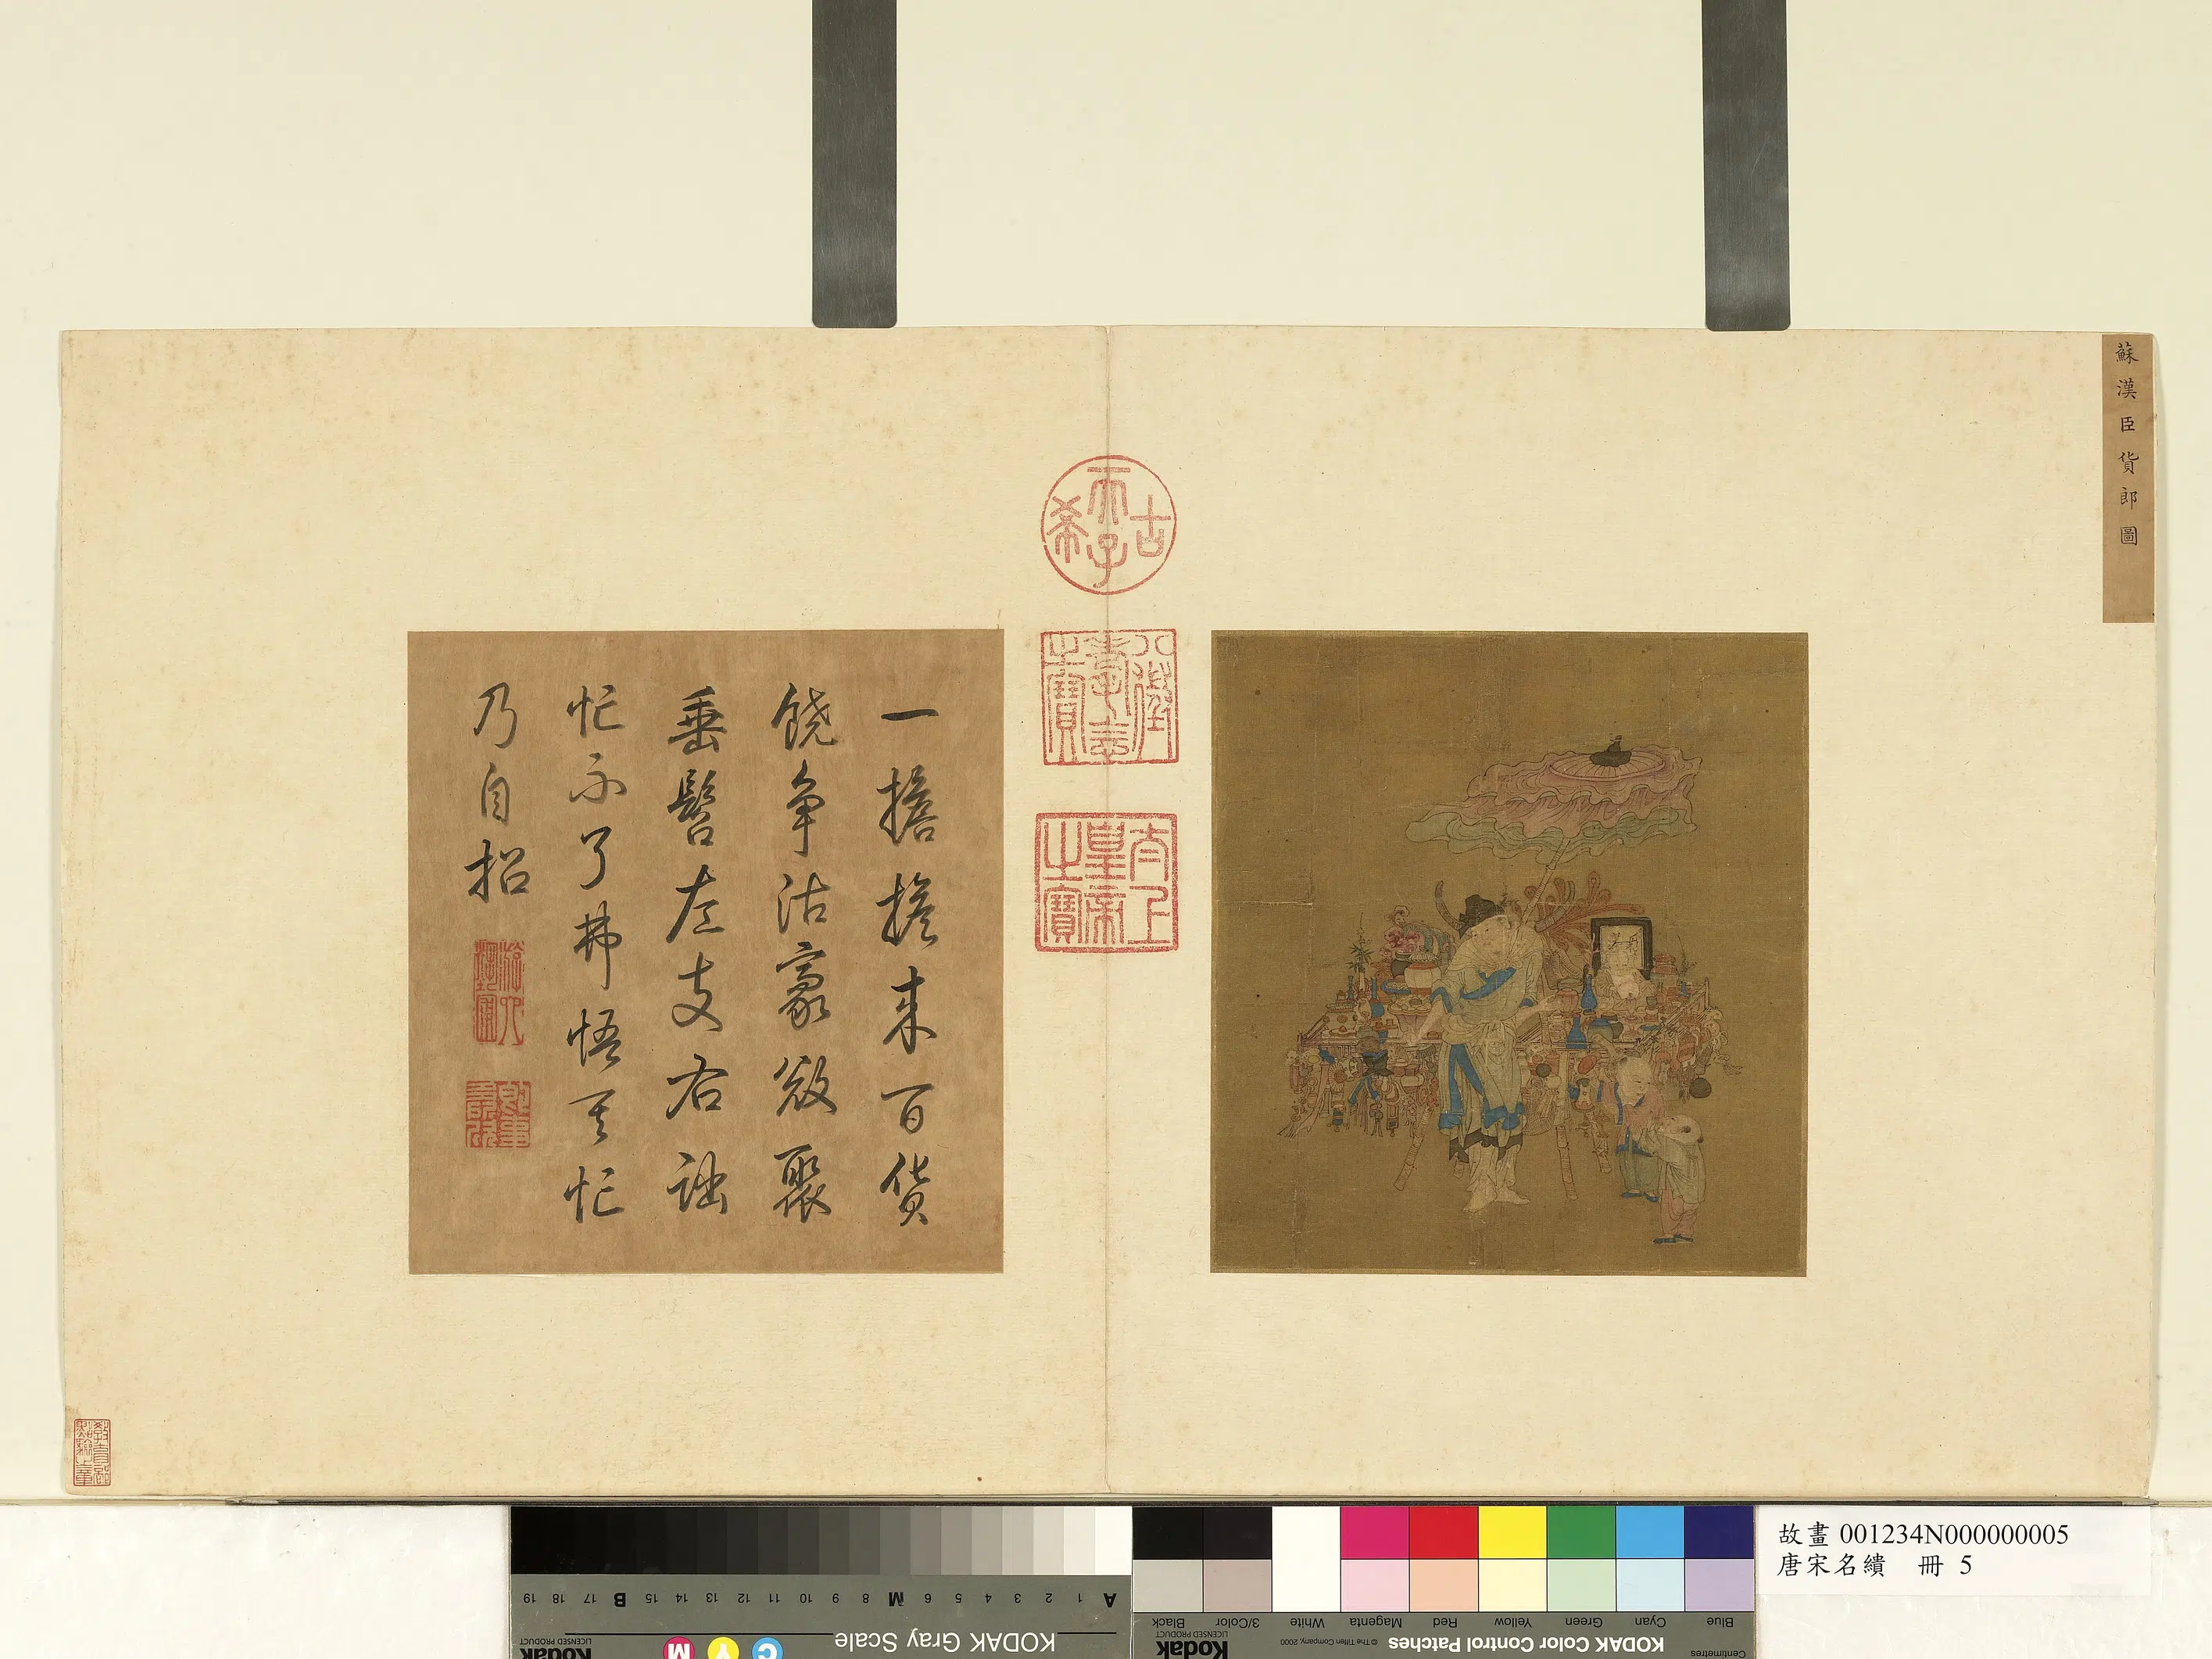 蘇漢臣貨郎圖
古希天子
八徵耄念之寶
太上皇帝之寶
一擔擔來百貨
饒爭沽家家聚
垂髫左支右詘
忙不了弗悟其忙
乃自招
故畫 001234N000000005
唐宋名繢 冊 5
KODAK Gray Scale
A 1 2 3 4 5 6 M 8 9 10 11 12 13 14 15 B 17 18 19
C Y M
Kodak
LICENSED PRODUCT
KODAK Color Control Patches
© The Tiffen Company, 2000
Kodak
LICENSED PRODUCT
Blue Cyan Green Yellow Red Magenta White 3/Color Black
Centimetres